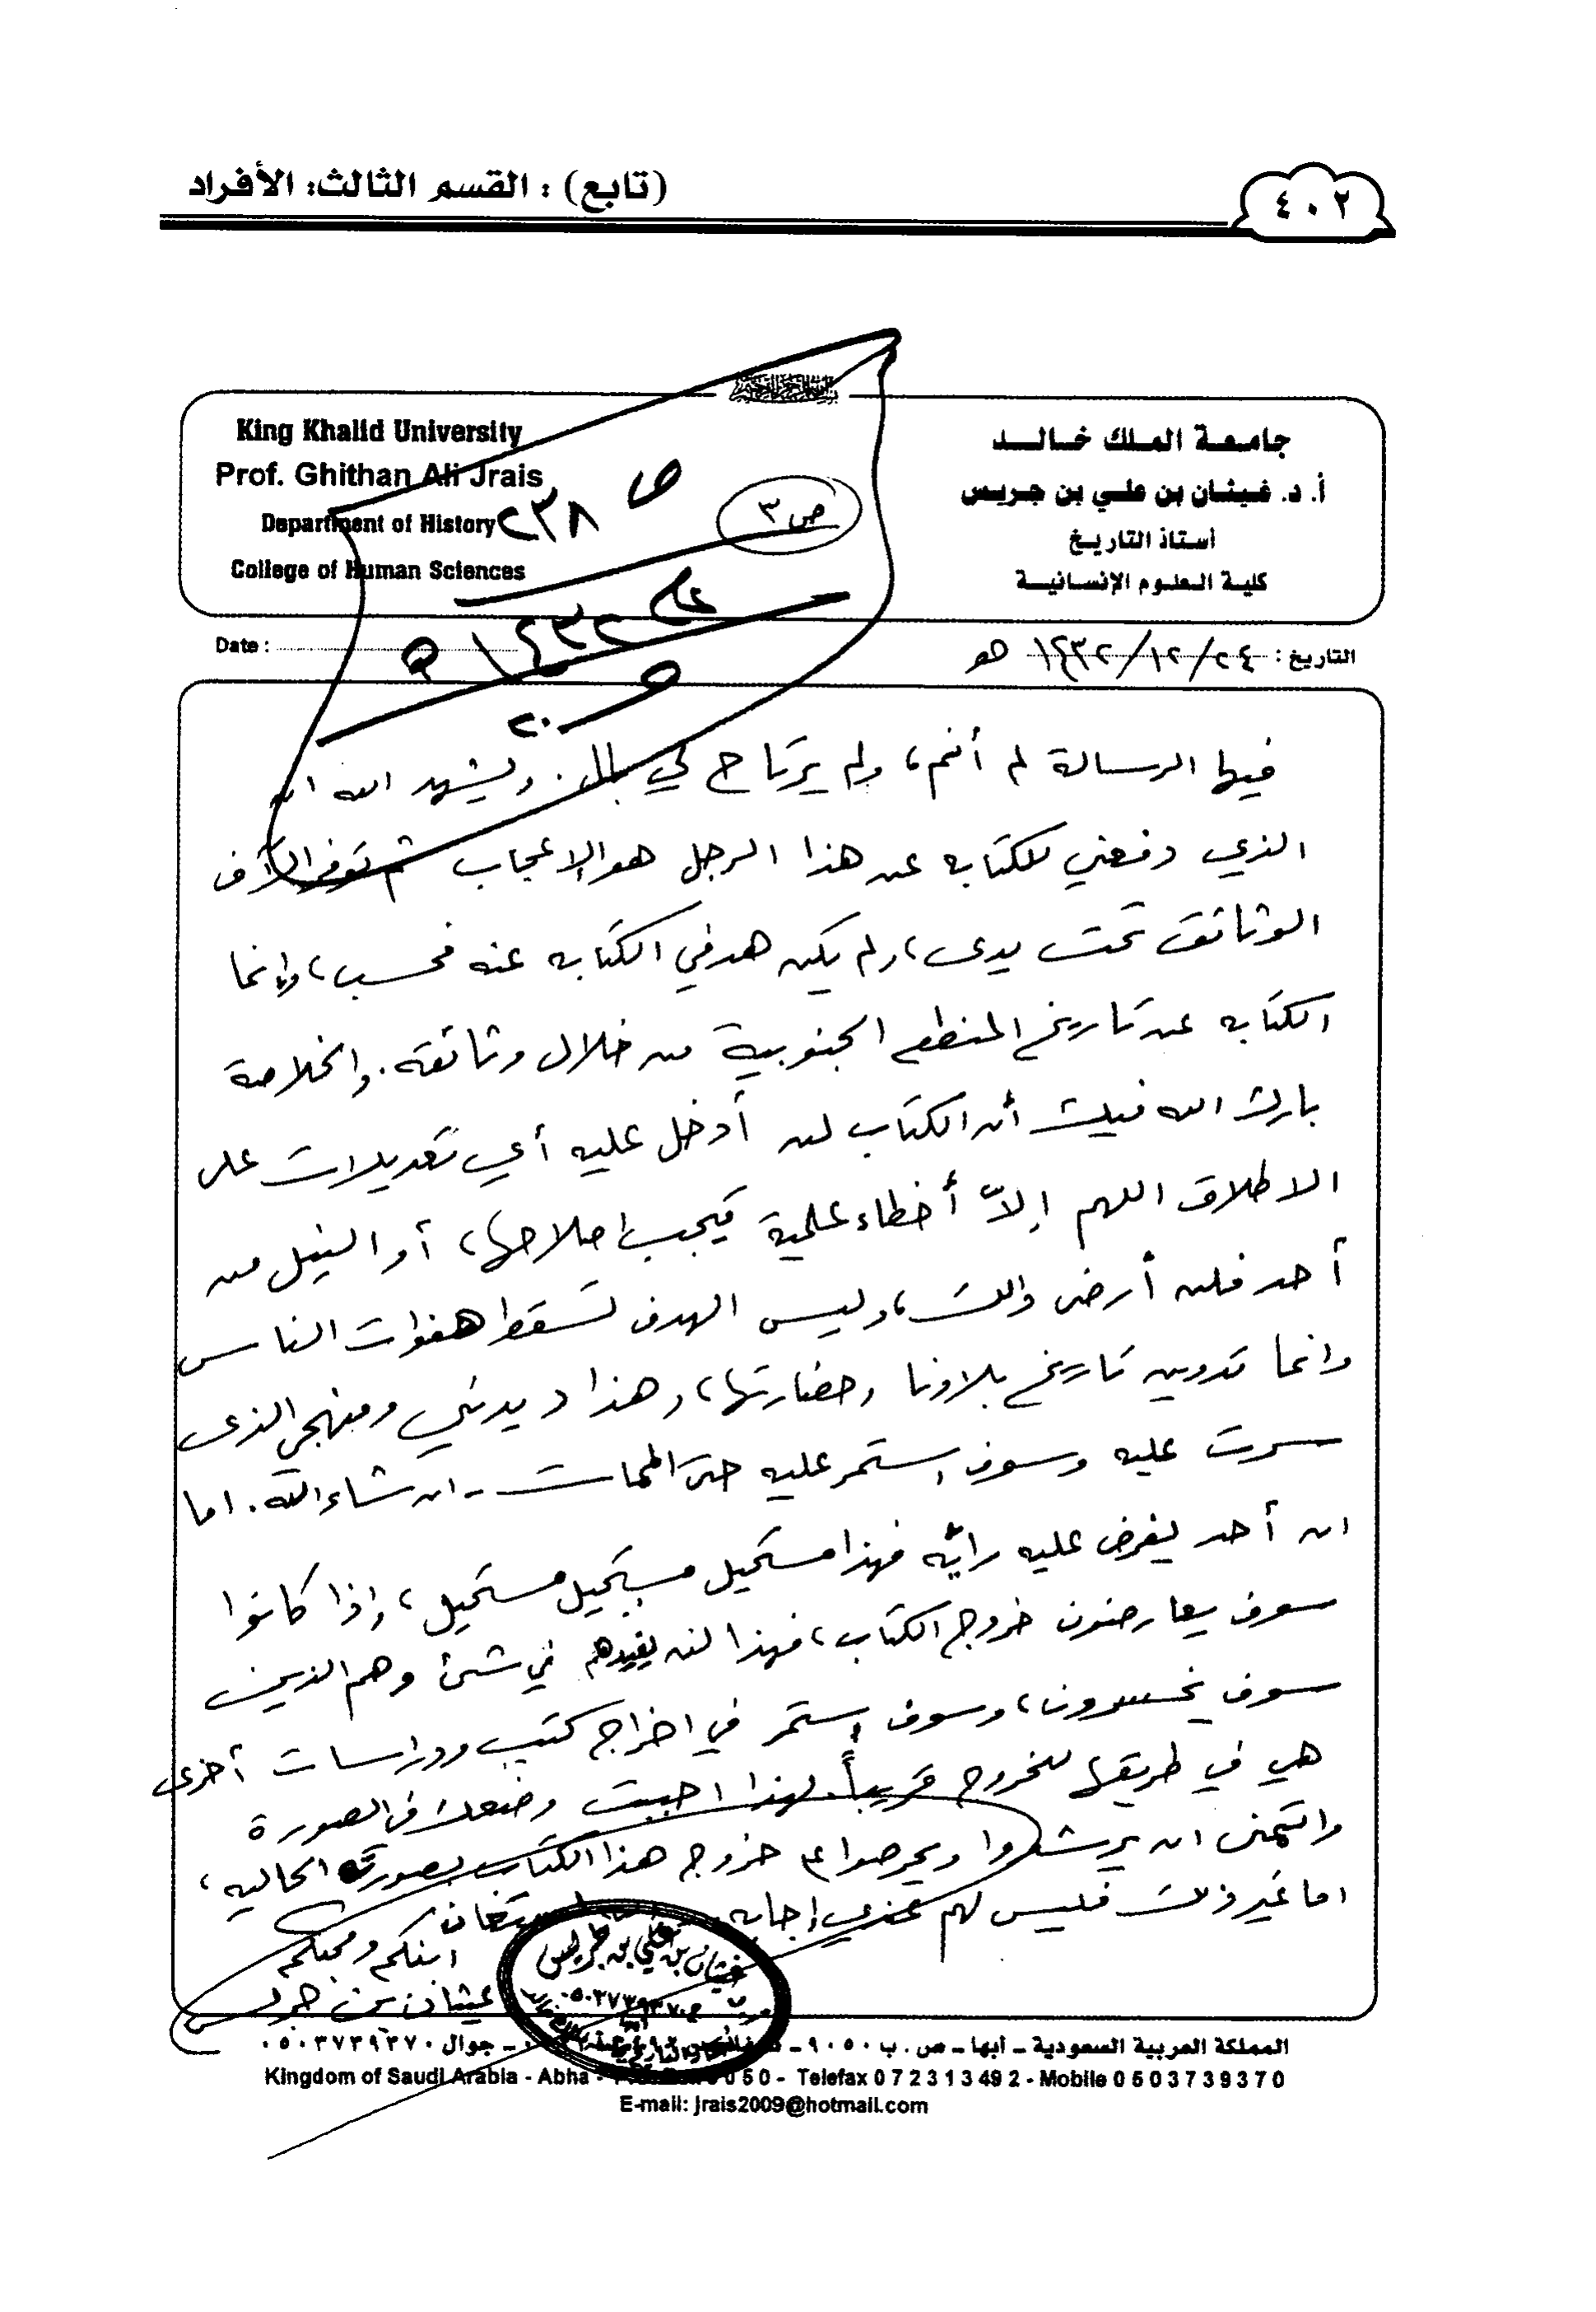 ٤٠٢
(تابع) : القسم الثالث: الأفراد
جامعة الملك خالد
أ. د. غيثان بن علي بن جريس
أستاذ التاريخ
كلية العلوم الإنسانية
King Khalid University
Prof. Ghithan Ali Jrais
Department of History
College of Human Sciences
ص ٣
ص ٢٣٨
١٤٣٢ هـ
٢٠
التاريخ : ٢٤/١٢/١٤٣٢ هـ
Date :
فيها الرسالة لم أنم، ولم يرتاح لي بال. ويشهد الله ان
الذي دفعني للكتابه عن هذا الرجل هو الإعجاب ثم توفر آلاف
الوثائق تحت يدى، ولم يكن هدفي الكتابه عنه فحسب، وإنما
الكتابه عن تاريخ المنطقه الجنوبية من خلال وثائقه. والخلاصة
بارك الله فيك أن الكتاب لن أدخل عليه أي تعديلات على
الاطلاق اللهم إلاّ أخطاء علمية فيجب اصلاحها، أو النيل من
أحد فلن أرضى ذالك، وليس الهدف تسقط هفوات الناس
وانما تدوين تاريخ بلادنا وحضارتها، وهذا ديدني ومنهجي الذى
سرت عليه وسوف استمر عليه حتى الممات - ان شاء الله. اما
ان أحد يفرض عليه رايه فهذا مستحيل مستحيل مستحيل، واذا كانوا
سوف يعارضون خروج الكتاب، فهذا لن يفيدهم في شئ وهم الذين
سوف يخسرون، وسوف استمر في اخراج كتب ودراسات أخرى
هي في طريقها للخروج قريباً. لهذا احببت وضعك في الصورة
واتمنى ان يرشدوا ويحرصوا على خروج هذا الكتاب بصورته الحاليه،
اما غير ذلك فليس لهم عندي إجابه
ابنكم ومحبكم
غيثان بن جريس
غيثان بن علي بن جريس
المملكة العربية السعودية - أبها - ص . ب ٩٠٥٠ - جوال ٠٥٠٣٧٣٩٣٧٠
Kingdom of Saudi Arabia - Abha - 9050 - Telefax 072313492 - Mobile 0503739370
E-mail: jrais2009@hotmail.com